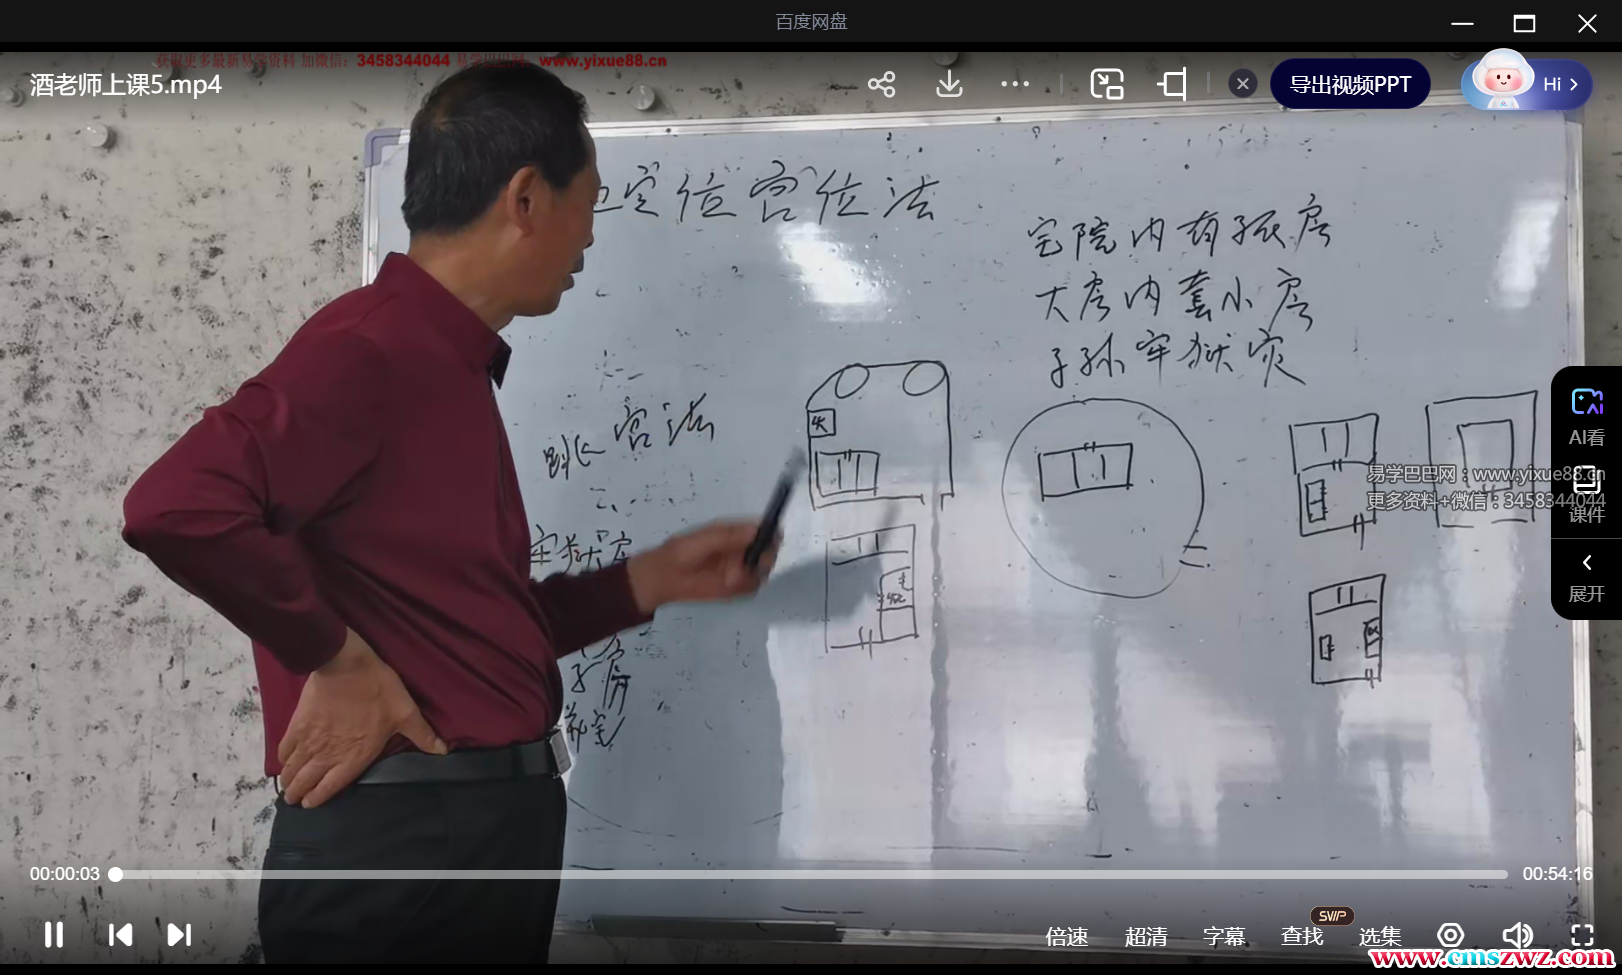 百度网盘
获取更多最新易学资料 加微信：3458344044 易学巴巴网：www.yixue88.cn
酒老师上课5.mp4
导出视频PPT
Hi
定位宫位法
宅院内有孤房
大房内套小房
子孙牢狱灾
宫法
AI看
易学巴巴网：www.yixue88.cn
更多资料+微信：3458344044
课件
展开
00:00:03
00:54:16
倍速
超清
字幕
查找
SVIP
选集
www.cmszwz.com